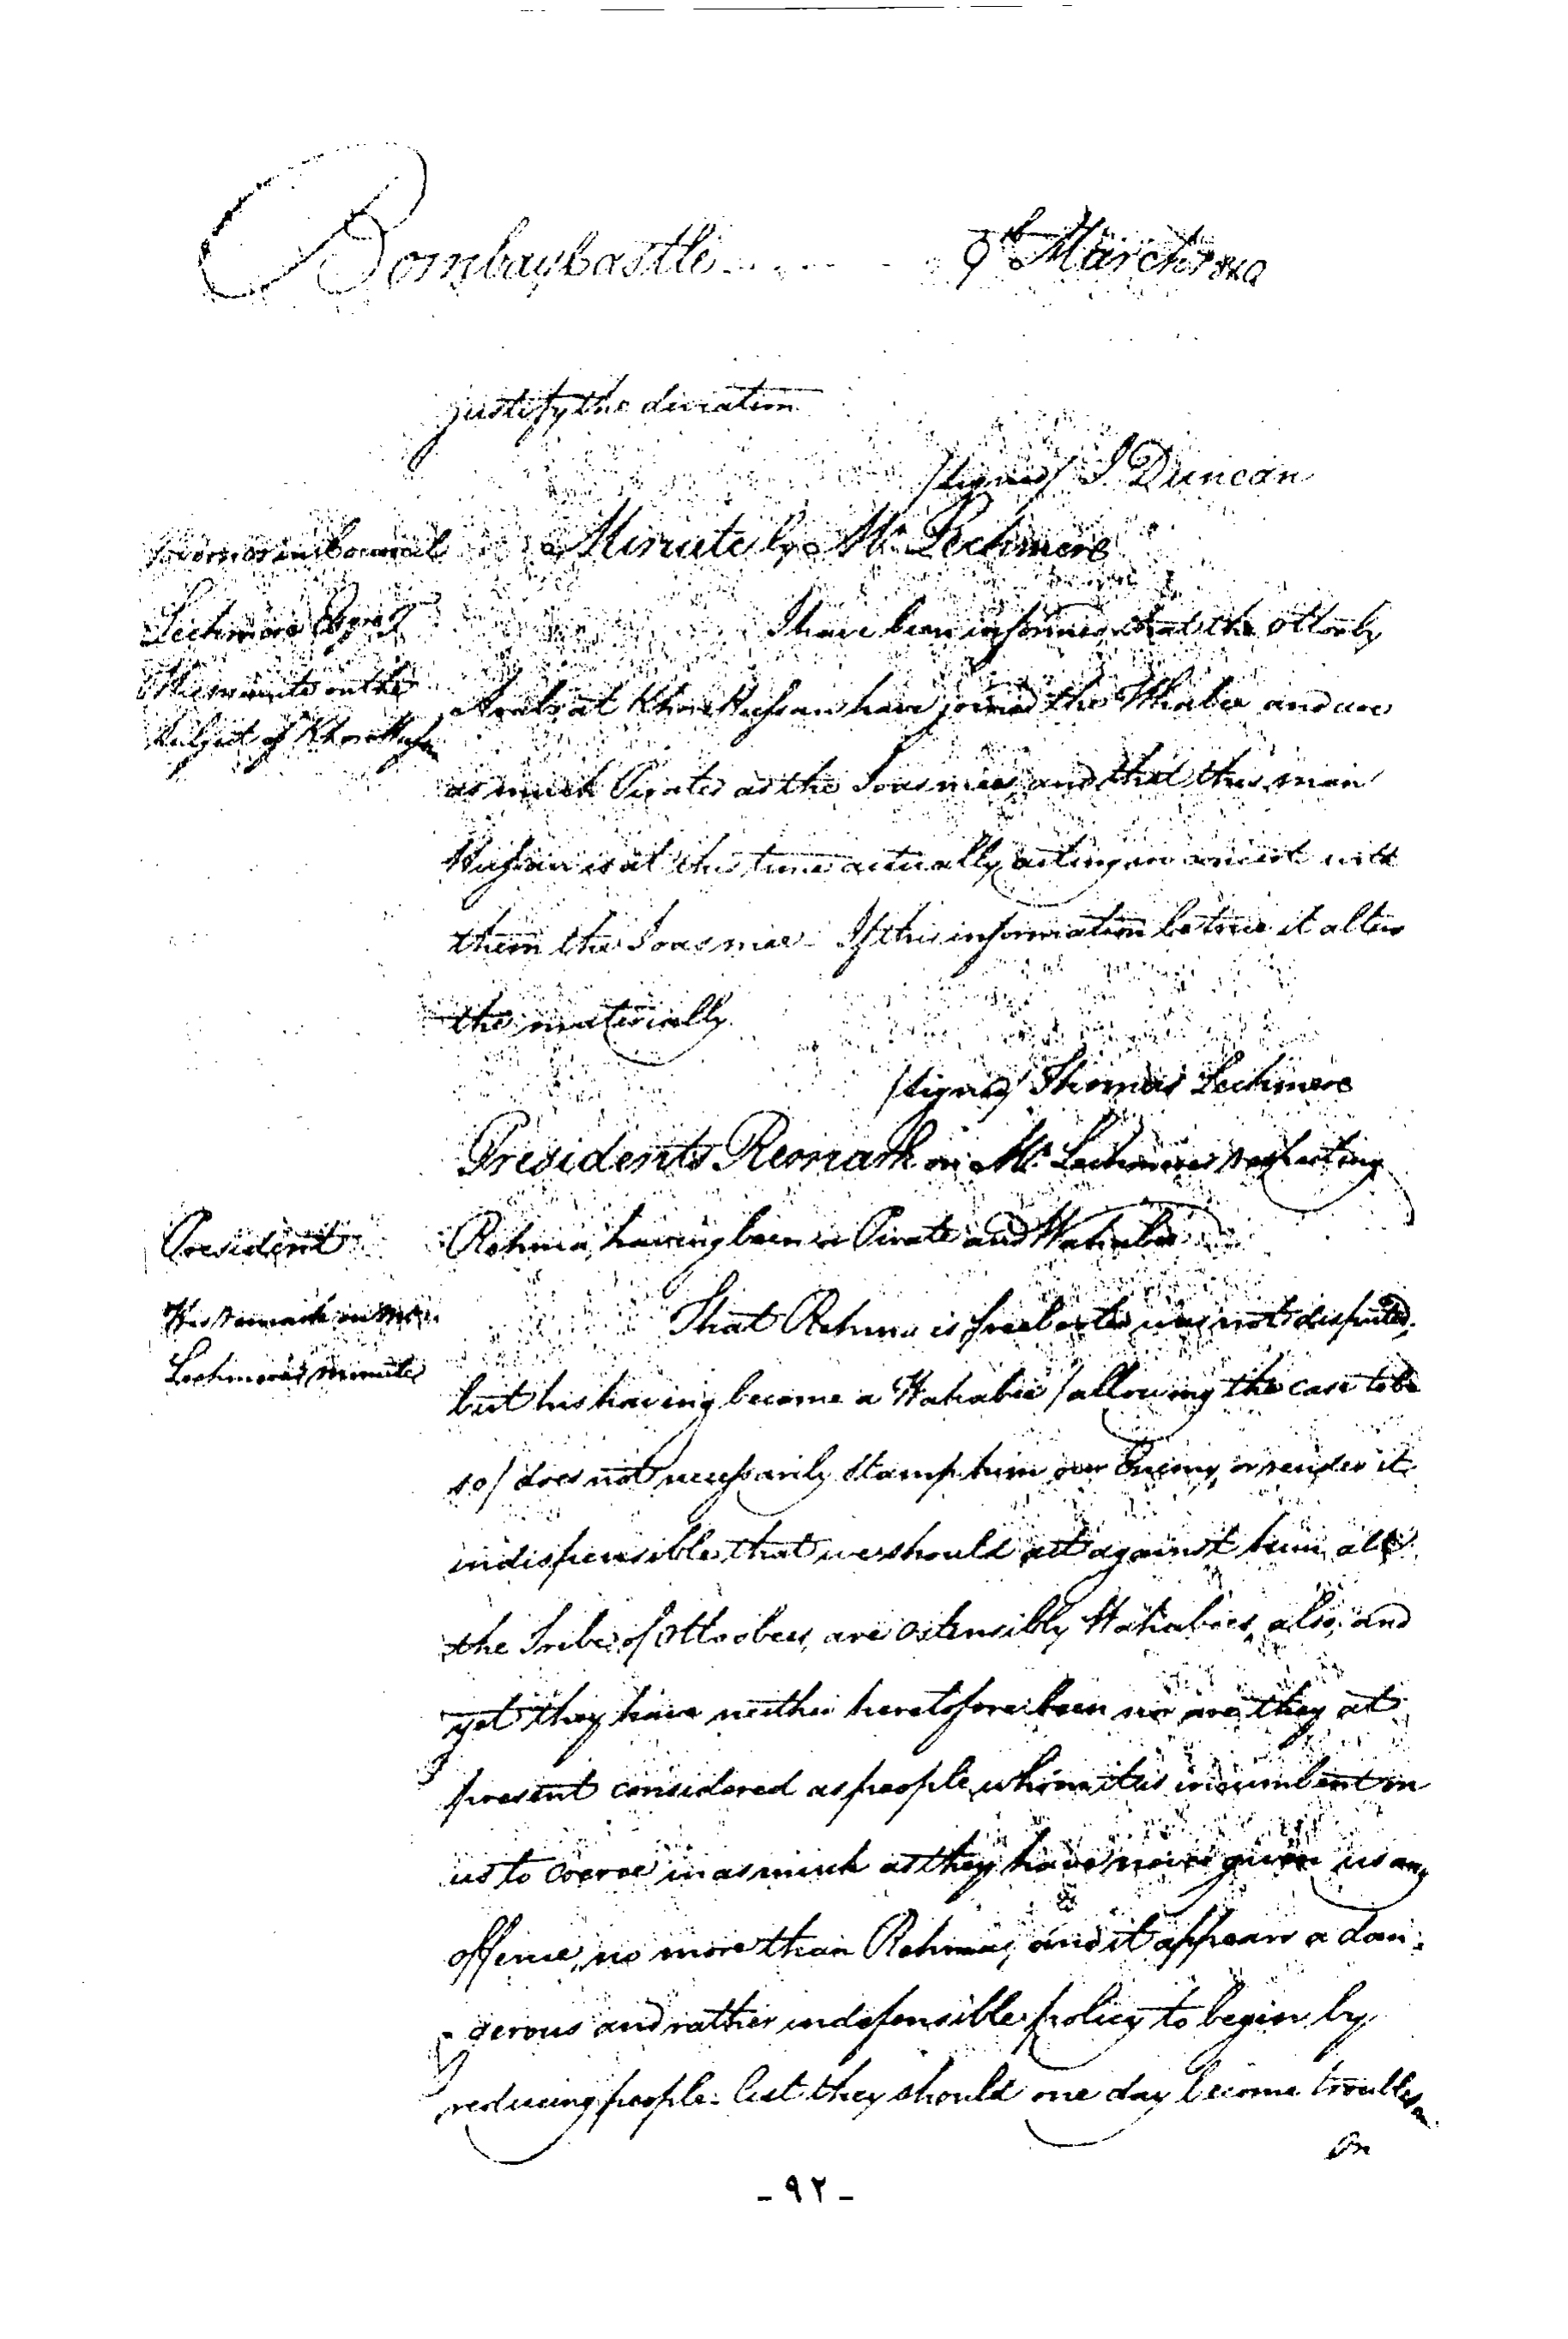 Bombay Castle 9th March 1810
justify the deviation
/signed/ J. Duncan
Governor in Council
Minute by Mr. Lechmere
Lechmere Esqre
His minute on the
subject of Khore Hassan
I have been informed that the Ottooby
Arabs at Khore Hassan have joined the Whabee and are
as much Pirates as the Joasmees, and that this man
Hassan is at this time actually acting in concert with
them the Joasmee. If this information be true it alters
the materially.
/signed/ Thomas Lechmere
Presidents Remark on Mr. Lechmeres respecting
President
Rahma having been a Pirate and Wahabee
His remark on Mr.
Lechmeres minute
That Rahma is freebooter was not disputed,
but his having become a Wahabee /allowing the case to be
so/ does not necessarily stamp him our Enemy, or render it
indispensible that we should act against him, all
the Tribe of Ottoobees, are ostensibly Wahabees, also, and
yet they have neither heretofore been nor are they at
present considered as people whom it is incumbent on
us to coerce in as much as they have never given us any
offence, no more than Rahma, and it appears a dan-
-gerous and rather indefensible policy to begin by
reducing people lest they should one day become troublesom
On
- ٩٢ -